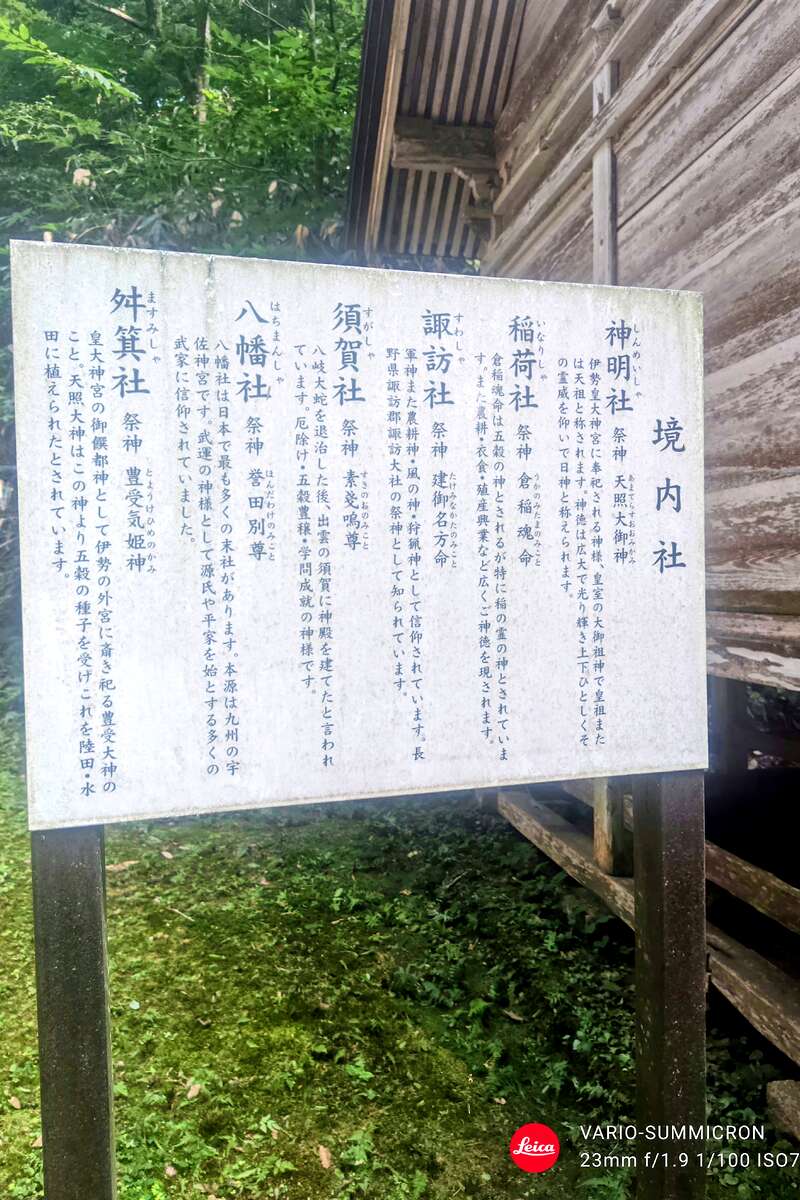 境内社
しんめいしゃ
神明社 祭神 天照大御神
あまてらすおおみかみ
伊勢皇大神宮に奉祀される神様、皇室の大御祖神で皇祖また
は天祖と称されます。神徳は広大で光り輝き上下ひとしくそ
の霊威を仰いで日神と称えられます。
いなりしゃ
稲荷社 祭神 倉稲魂命
うかのみたまのみこと
倉稲魂命は五穀の神とされるが特に稲の霊の神とされていま
す。また農耕・衣食・殖産興業など広くご神徳を現されます。
すわしゃ
諏訪社 祭神 建御名方命
たけみなかたのみこと
軍神また農耕神・風の神・狩猟神として信仰されています。長
野県諏訪郡諏訪大社の祭神として知られています。
すがしゃ
須賀社 祭神 素戔嗚尊
すさのおのみこと
八岐大蛇を退治した後、出雲の須賀に神殿を建てたと言われ
ています。厄除け・五穀豊穣・学問成就の神様です。
はちまんしゃ
八幡社 祭神 誉田別尊
ほんだわけのみこと
八幡社は日本で最も多くの末社があります。本源は九州の宇
佐神宮です。武運の神様として源氏や平家を始とする多くの
武家に信仰されていました。
ますみしゃ
舛箕社 祭神 豊受気姫神
とようけひめのかみ
皇大神宮の御饌都神として伊勢の外宮に斎き祀る豊受大神の
こと。天照大神はこの神より五穀の種子を受けこれを陸田・水
田に植えられたとされています。
Leica
VARIO-SUMMICRON
23mm f/1.9 1/100 ISO7